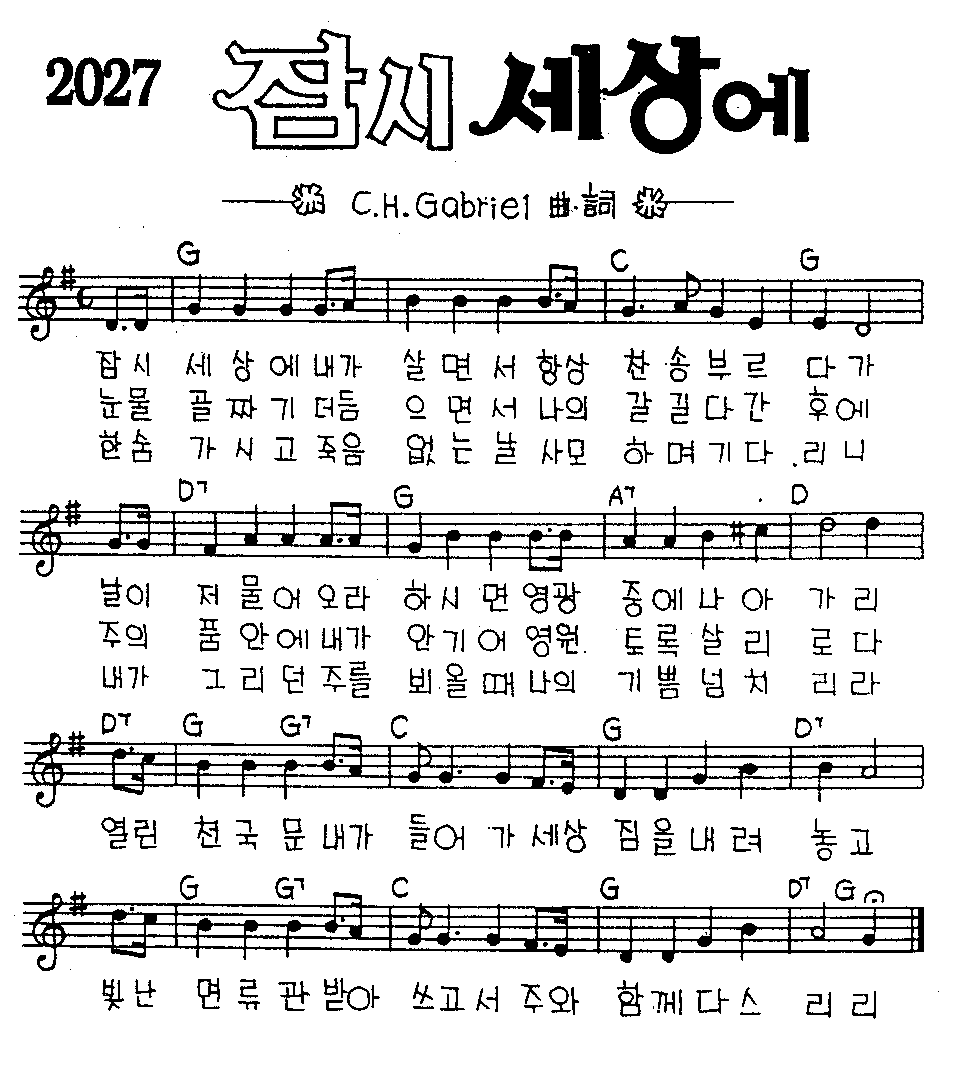 2027 잠시 세상에
C.H.Gabriel 曲·詞
G C G
잠시 세 상 에 내가 살 면 서 항상 찬 송 부 르 다 가
눈물 골 짜 기 더듬 으 면 서 나의 갈 길 다 간 후 에
한숨 가 시 고 죽음 없 는 날 사모 하 며 기 다 리 니
D7 G A7 D
날이 저 물 어 오라 하 시 면 영광 중 에 나 아 가 리
주의 품 안 에 내가 안 기 어 영원 토 록 살 리 로 다
내가 그 리 던 주를 뵈 올 때 나의 기 쁨 넘 치 리 라
D7 G G7 C G D7
열린 천 국 문 내가 들어 가 세상 짐 을 내 려 놓 고
G G7 C G D7 G
빛난 면 류 관 받아 쓰고 서 주와 함 께 다 스 리 리